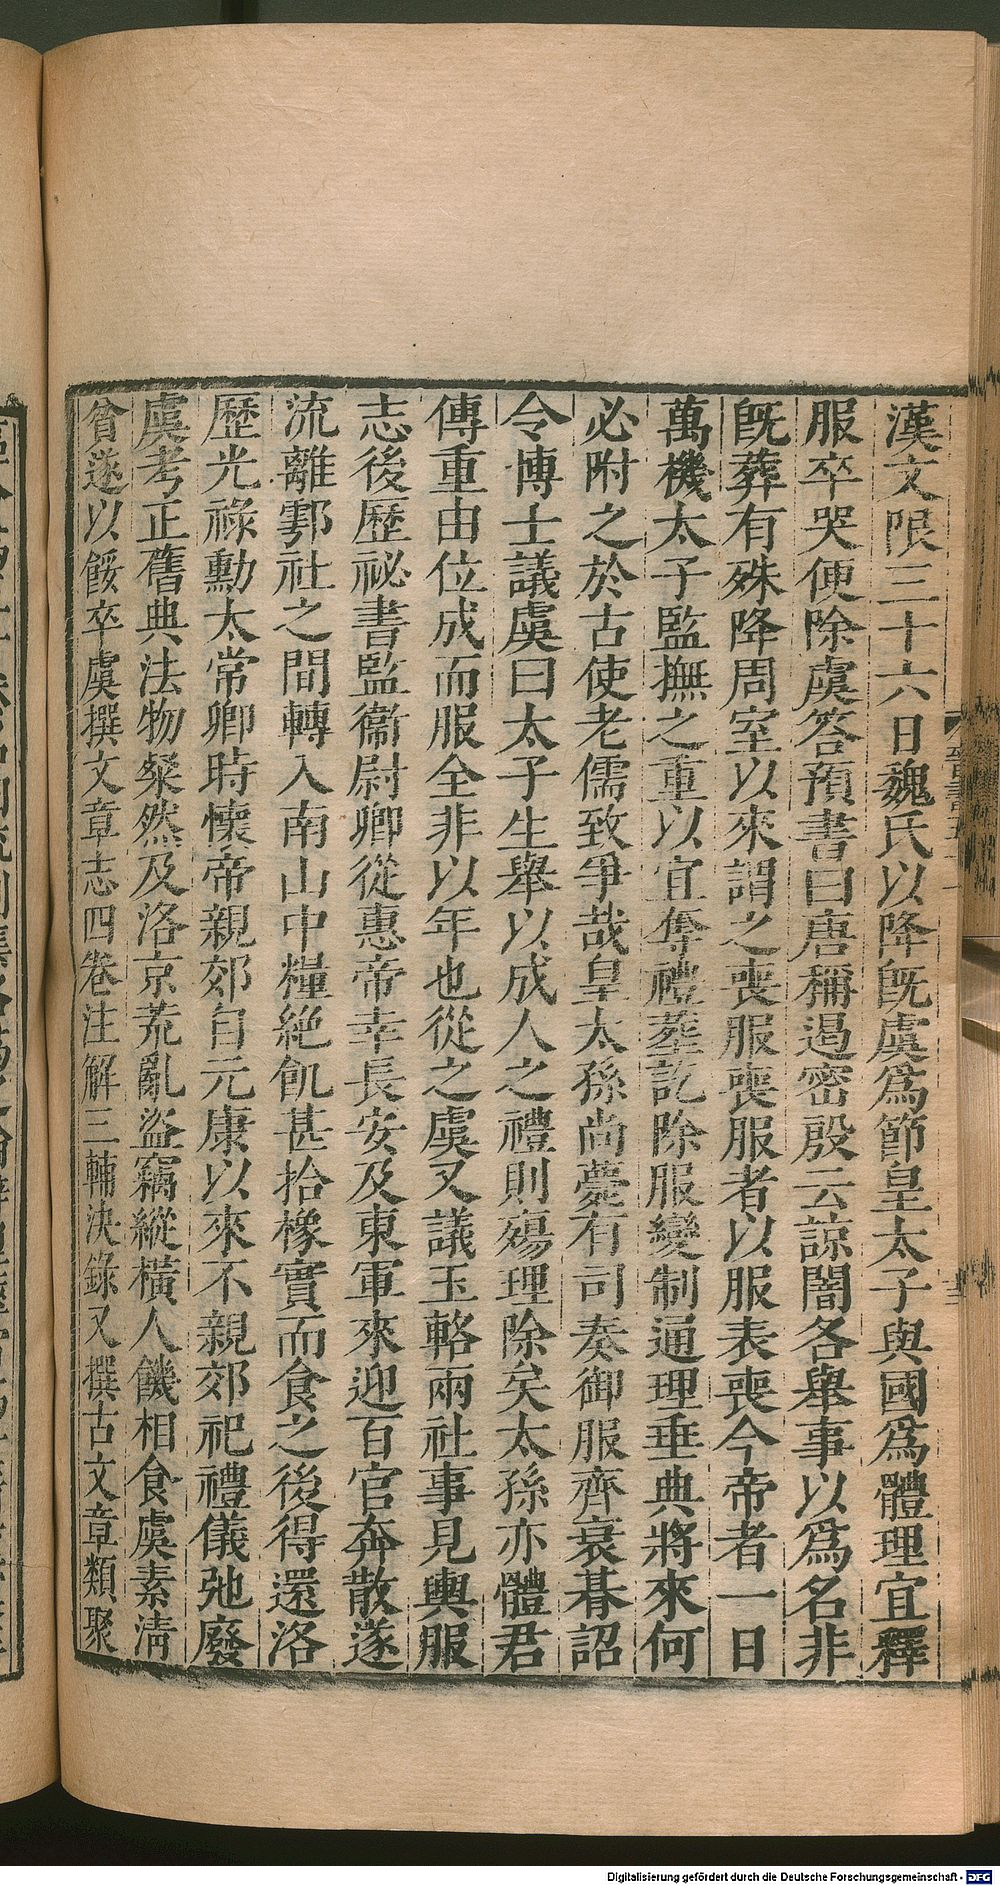 漢文限三十六日魏氏以降旣虞爲節皇太子與國爲體理宜釋
服卒哭便除虞答預書曰唐稱遏密殷云諒闇各舉事以爲名非
旣葬有殊降周室以來謂之喪服喪服者以服表喪今帝者一日
萬機太子監撫之重以宜奪禮葬訖除服變制通理垂典將來何
必附之於古使老儒致爭哉皇太孫尚薨有司奏御服齊衰朞詔
令博士議虞曰太子生舉以成人之禮則殤理除矣太孫亦體君
傳重由位成而服全非以年也從之虞又議玉輅兩社事見輿服
志後歷祕書監衞尉卿從惠帝幸長安及東軍來迎百官奔散遂
流離鄠社之間轉入南山中糧絕飢甚拾橡實而食之後得還洛
歷光祿勳太常卿時懷帝親郊自元康以來不親郊祀禮儀弛廢
虞考正舊典法物粲然及洛京荒亂盜竊縱橫人饑相食虞素淸
貧遂以餒卒虞撰文章志四卷注解三輔決錄又撰古文章類聚
Digitalisierung gefördert durch die Deutsche Forschungsgemeinschaft - DFG